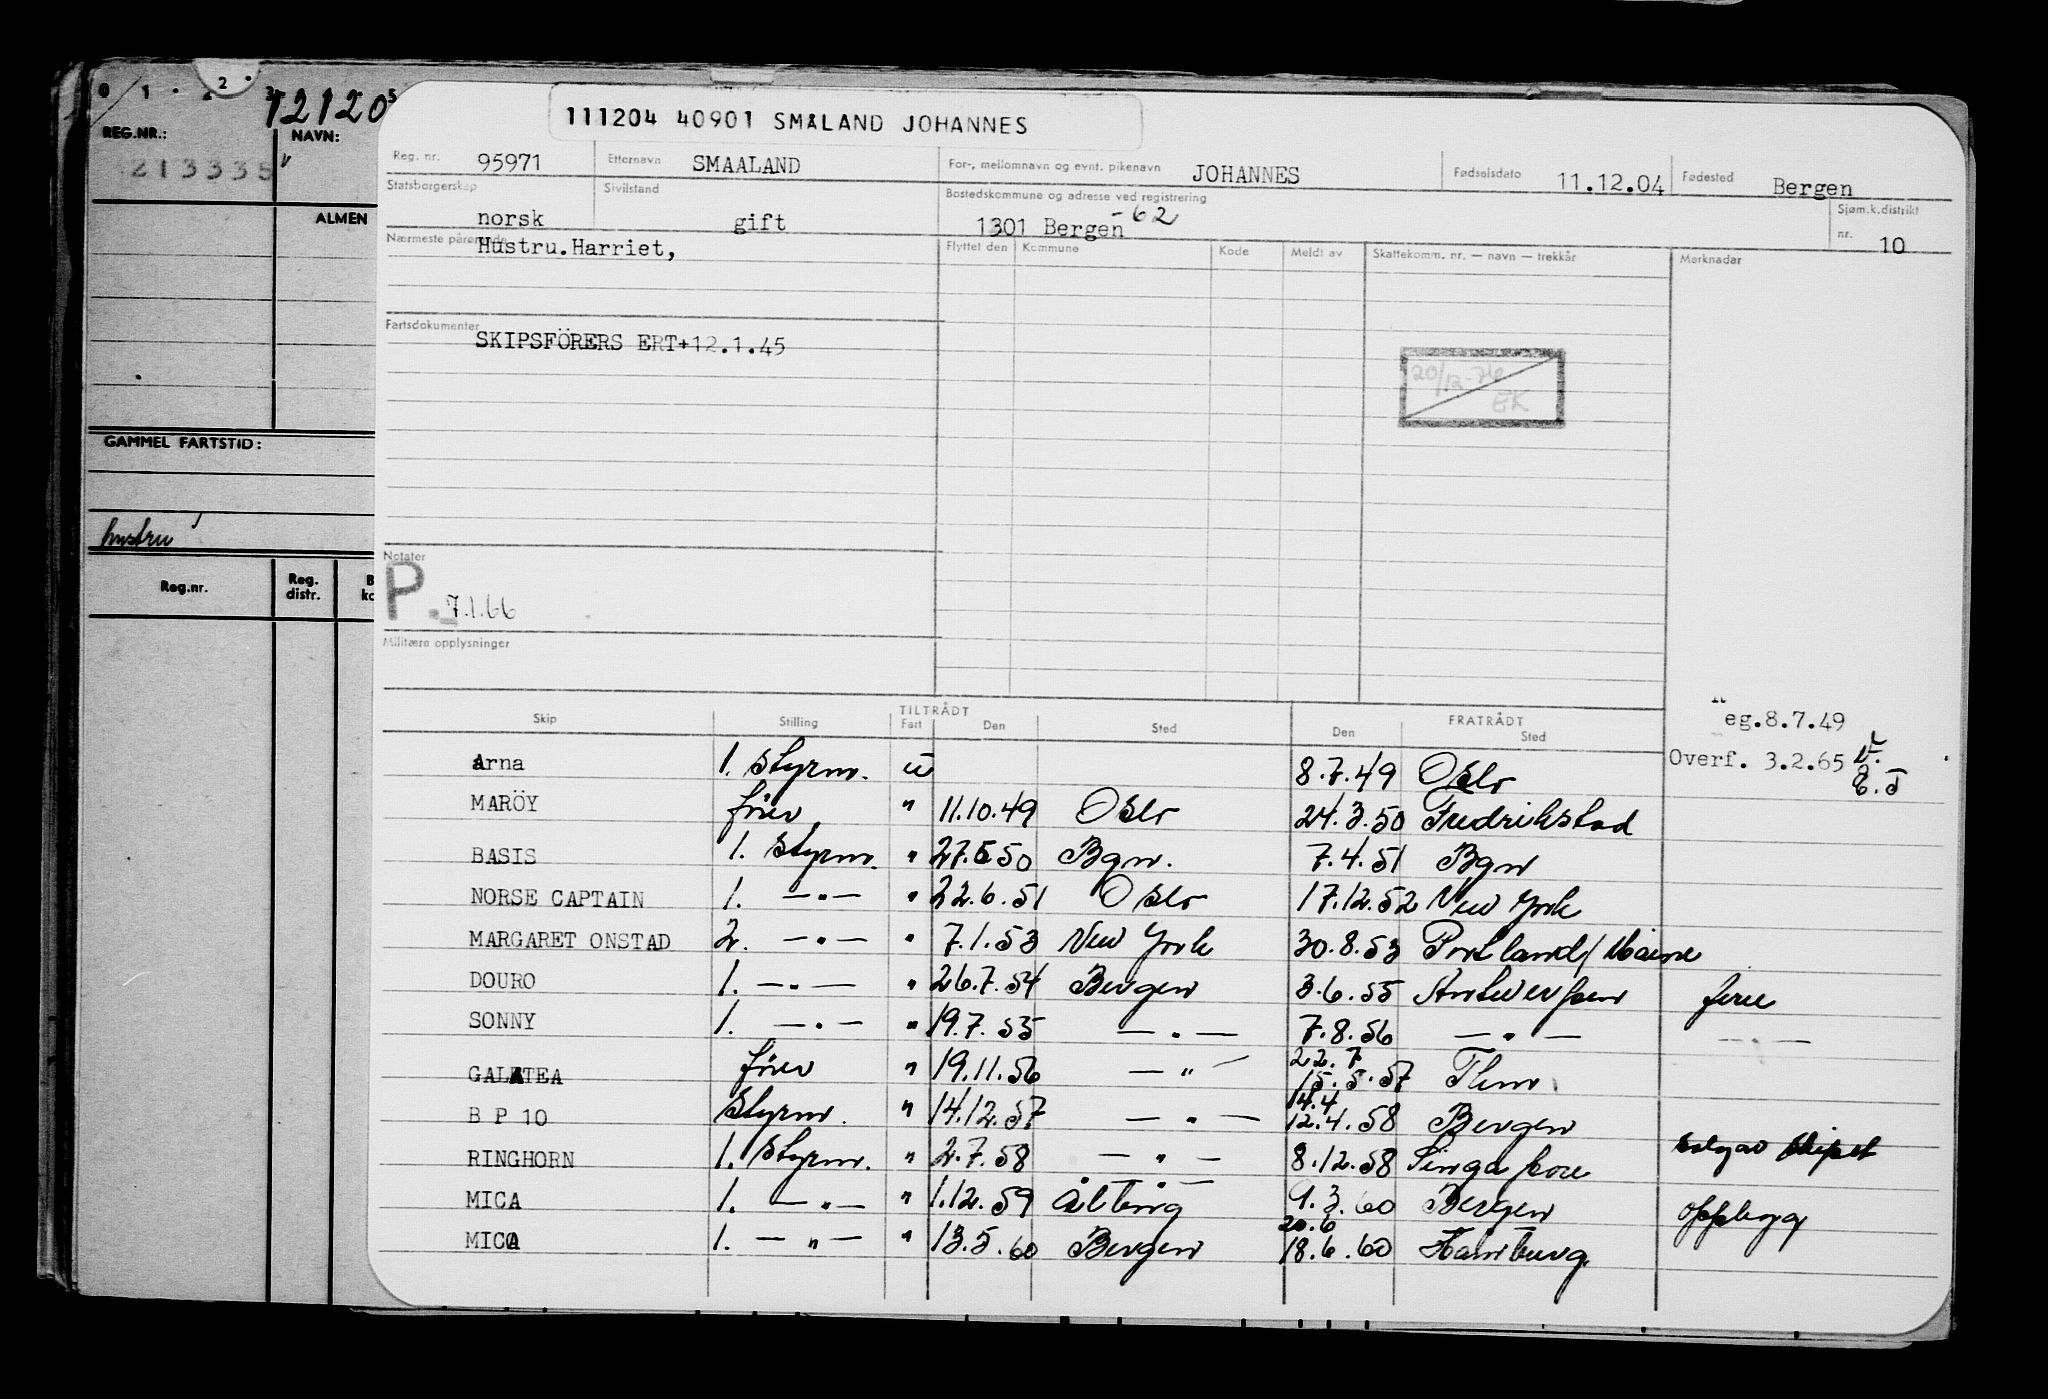 0 1 2 3 5
12120
REG.NR.: NAVN:
213335
ALMEN
GAMMEL FARTSTID:
hustru
Reg.nr. Reg. distr.
111204 40901 SMÅLAND JOHANNES
Reg. nr. 95971 Etternavn SMAALAND For-, mellomnavn og evnt. pikenavn JOHANNES Fødselsdato 11.12.04 Fødested Bergen
Statsborgerskap norsk Sivilstand gift Bostedskommune og adresse ved registrering 1301 Bergen -62 Sjøm.k.distrikt nr. 10
Nærmeste pårørende Hustru.Harriet, Flyttet den Kommune Kode Meldt av Skattekomm. nr. — navn — trekkår Merknader
Fartsdokumenter
SKIPSFÖRERS ERT+12.1.45
20/12-76
EK
Notater
P. 7.1.66
Militære opplysninger
eg.8.7.49
Overf. 3.2.65
E.J
TILTRÅDT FRATRÅDT
Skip Stilling Fart Den Sted Den Sted
Arna 1. Styrm. u 8.7.49 Oslo
MARÖY förer " 11.10.49 Oslo 24.3.50 Fredrikstad
BASIS 1. Styrm. " 27.5.50 Bgn. 7.4.51 Bgn
NORSE CAPTAIN 1. —"— " 22.6.51 Oslo 17.12.52 New York
MARGARET ONSTAD 2. —"— " 7.1.53 New York 30.8.53 Portland/Maine
DOURO 1. —"— " 26.7.54 Bergen 3.6.55 Antwerpen ferie
SONNY 1. —"— " 19.7.55 —"— 7.8.56 —"— —"—
GALATEA förer " 19.11.56 —"— 22.7 15.5.57 Thm
B P 10 Styrm. " 14.12.57 —"— 14.4 12.4.58 Bergen
RINGHORN 1. Styrm. " 2.7.58 —"— 8.12.58 Singapore solgav skipet
MICA 1. —"— " 1.12.59 Ålting 9.3.60 Bergen opplegg
MICA 1. —"— " 13.5.60 Bergen 20.6 18.6.60 Hamburg.